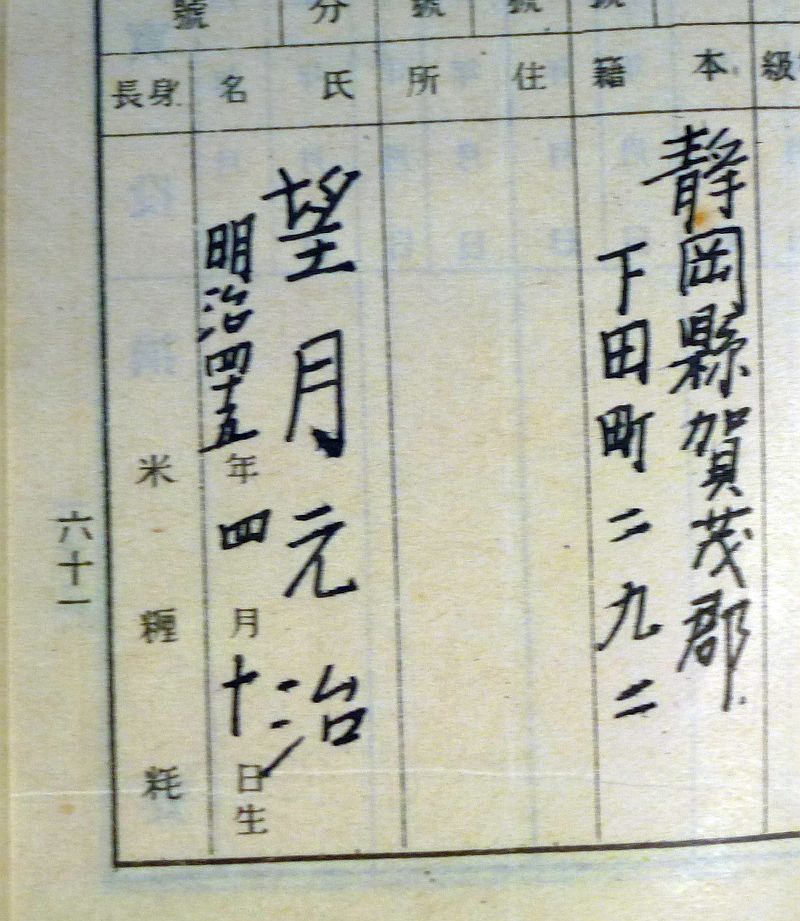 級
本籍
靜岡縣賀茂郡
下田町二九二
住所
氏名
望月元治
明治四十五年四月十日生
身長
米 糎 粍
六十一